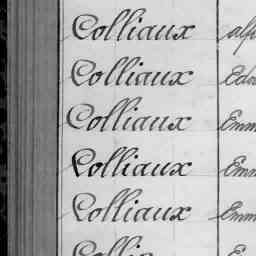 Colliaux
Colliaux Edo
Colliaux Emm
Colliaux Emm
Colliaux Emm